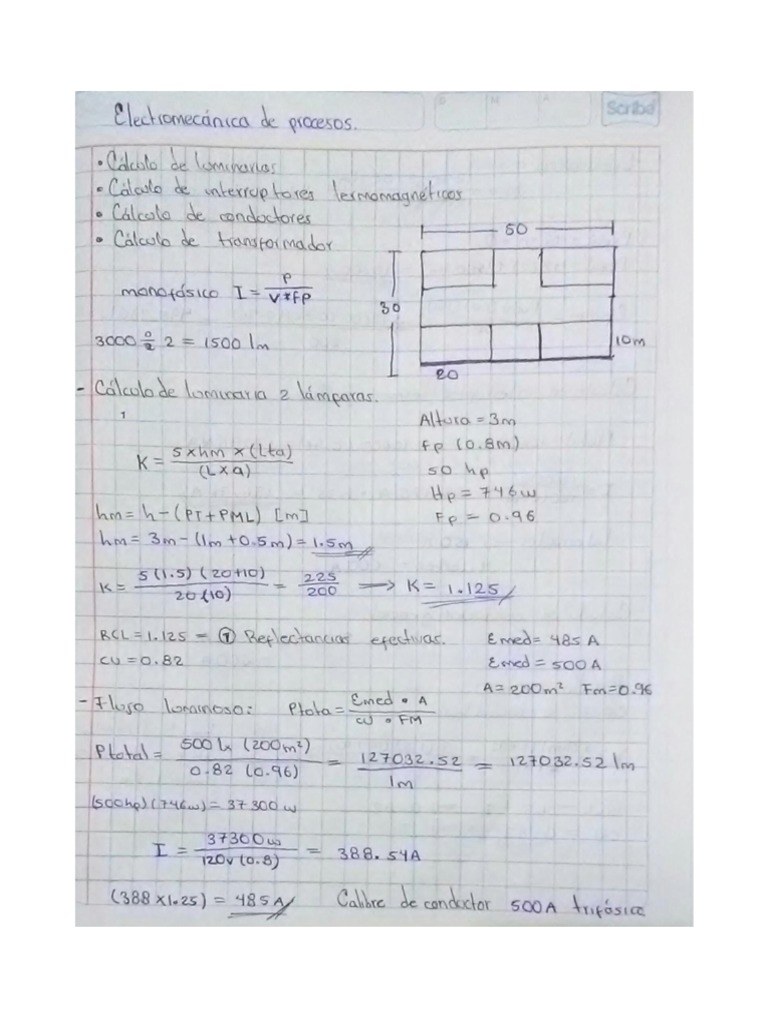 Scribe
Electromecánica de procesos.
• Cálculo de luminarias
• Cálculo de interruptores termomagnéticos
• Cálculo de conductores
• Cálculo de transformador
monofásico I = P / V*fp
3000 ÷ 2 = 1500 lm
50
30
10m
20
- Cálculo de luminaria 2 lámparas.
Altura = 3m
fp (0.8m)
50 hp
Hp = 746w
Fp = 0.96
K = 5 x hm x (L+a) / (L x a)
hm = h - (PT + PML) [m]
hm = 3m - (1m + 0.5m) = 1.5m
K = 5(1.5)(20+10) / 20(10) = 225 / 200 → K = 1.125
RCL = 1.125 = ① Reflectancias efectivas.
CU = 0.82
Emed = 485 A
Emed = 500 A
A = 200m² Fm = 0.96
- Flujo luminoso: Ptota = Emed • A / cu • FM
Ptotal = 500 lx (200m²) / 0.82 (0.96) = 127032.52 / lm = 127032.52 lm
(500hp)(746w) = 37300 w
I = 37300w / 120v (0.8) = 388.54A
(388 x 1.25) = 485 A
Calibre de conductor 500A trifásica